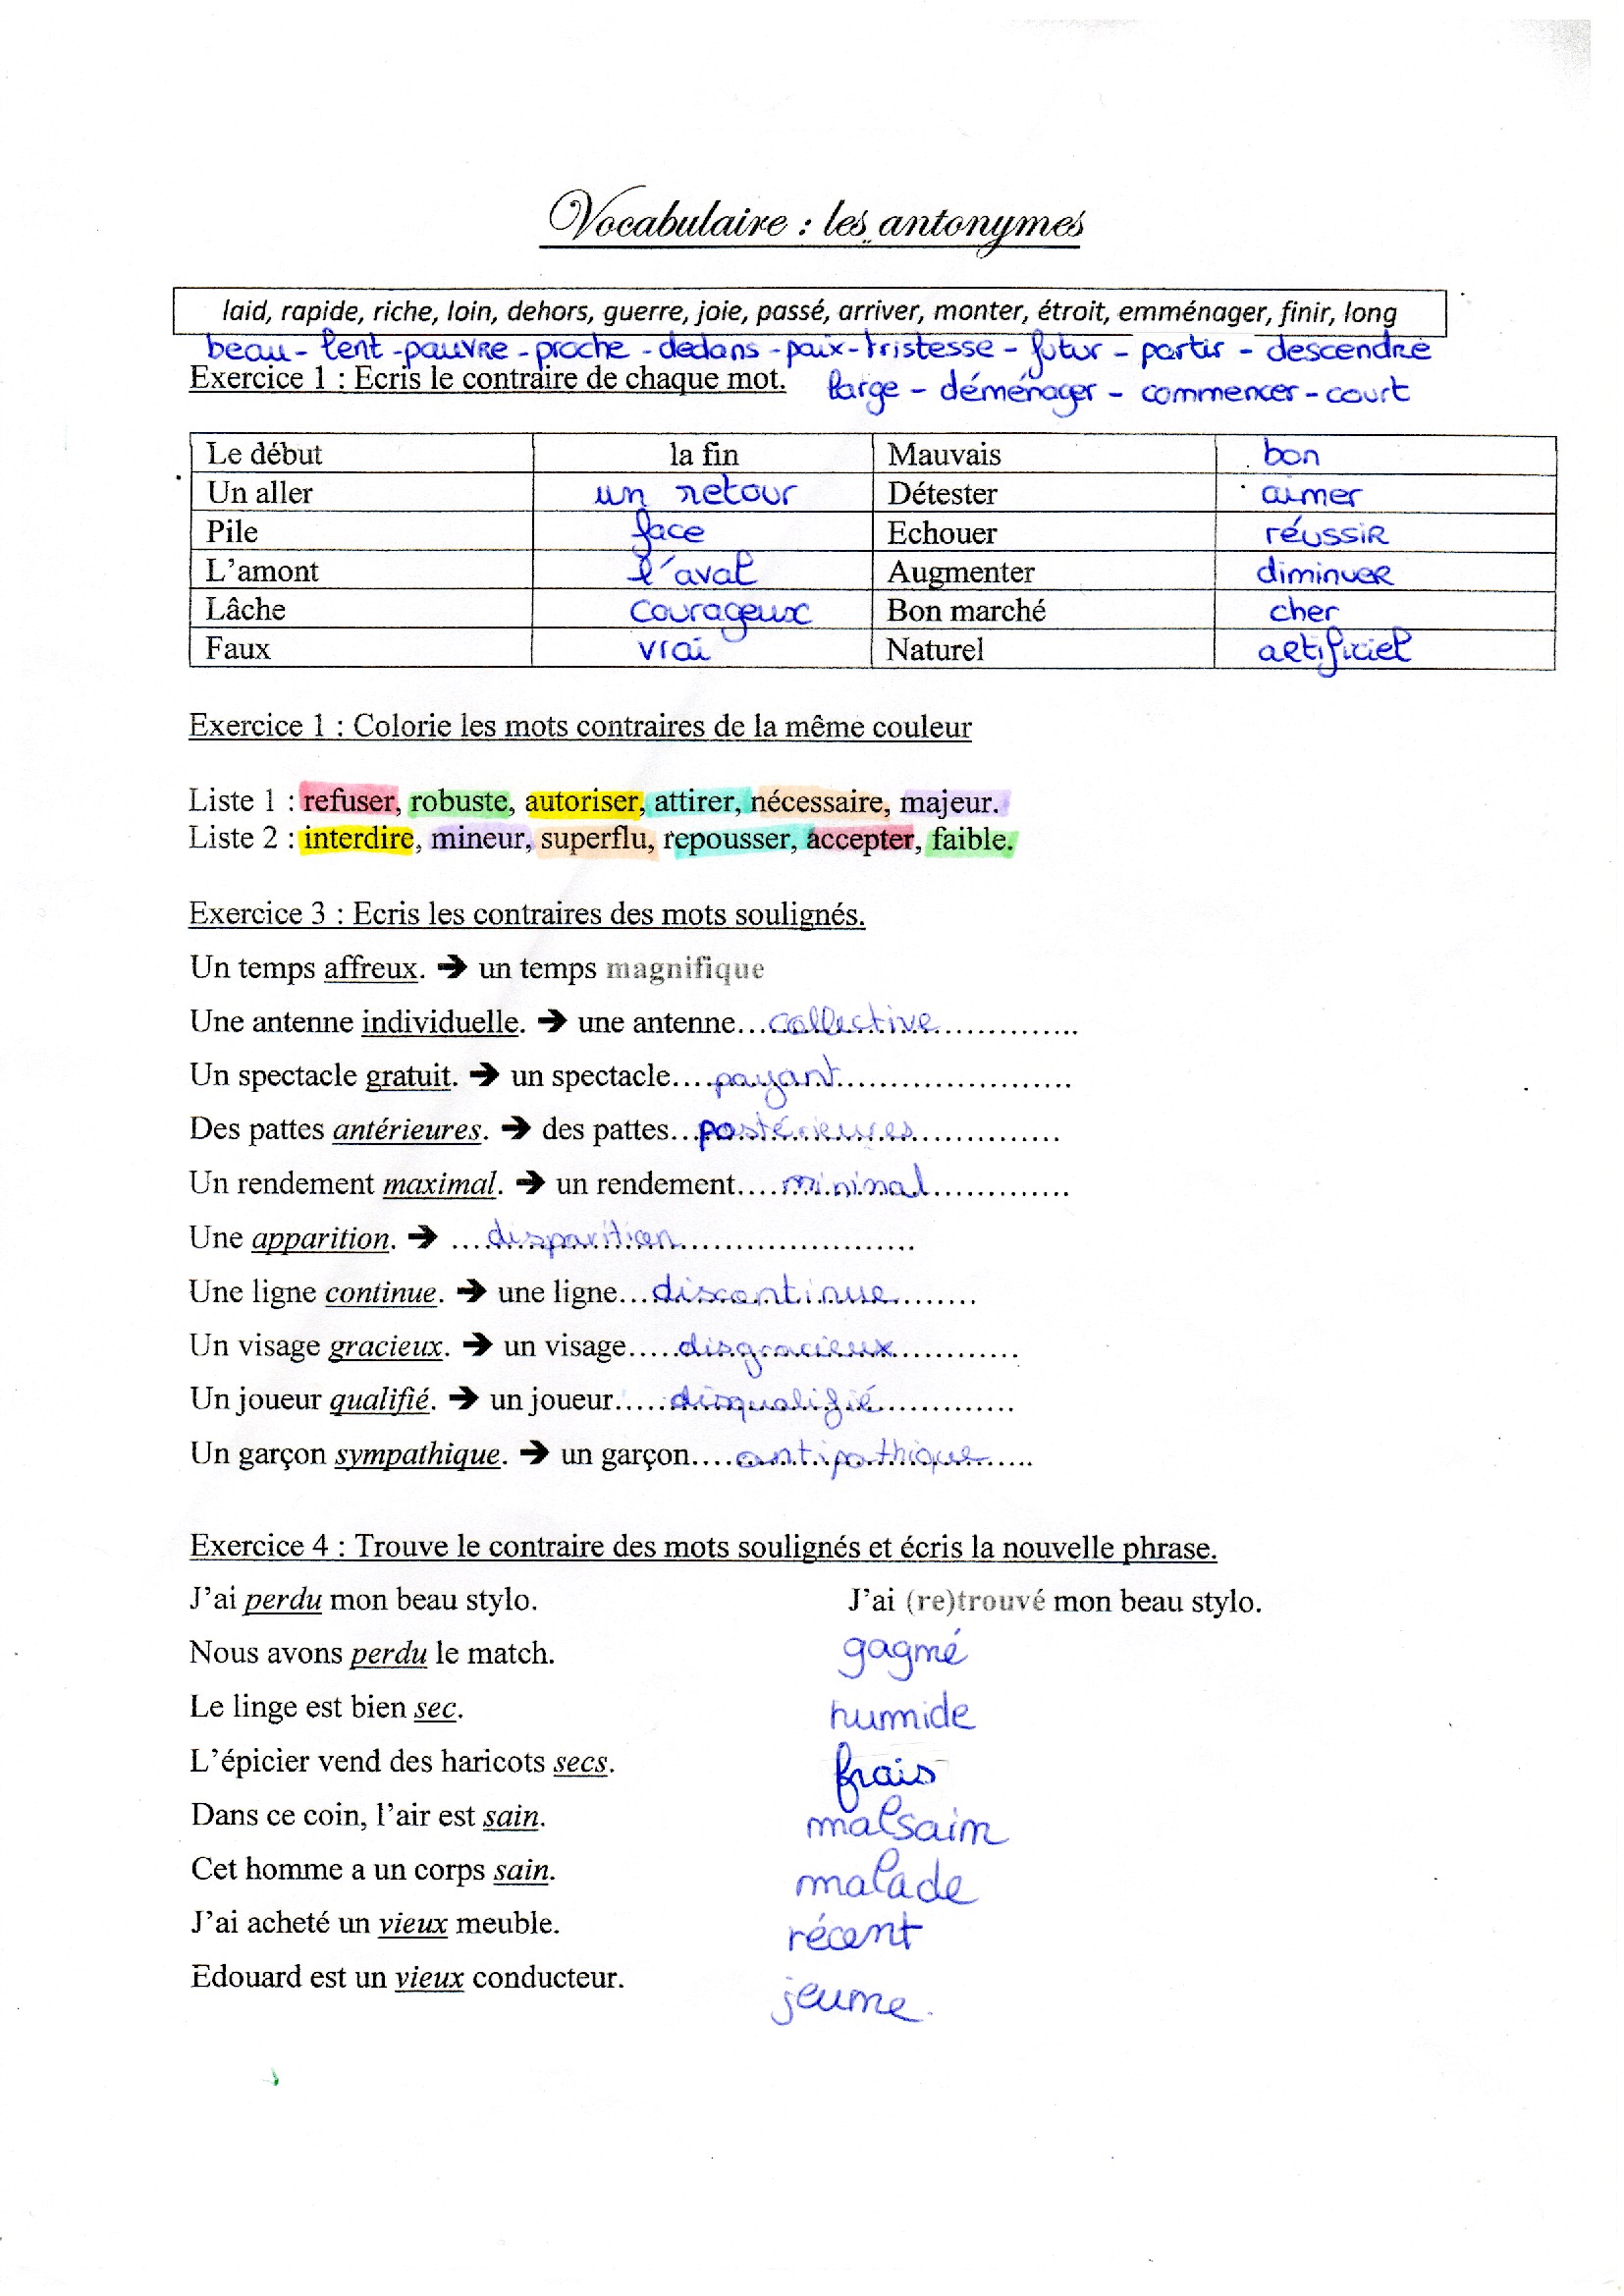 Vocabulaire : les antonymes
laid, rapide, riche, loin, dehors, guerre, joie, passé, arriver, monter, étroit, emménager, finir, long
beau - lent - pauvre - proche - dedans - paix - tristesse - futur - partir - descendre
Exercice 1 : Ecris le contraire de chaque mot. large - déménager - commencer - court
Le début la fin Mauvais bon
Un aller un retour Détester aimer
Pile face Echouer réussir
L'amont l'aval Augmenter diminuer
Lâche courageux Bon marché cher
Faux vrai Naturel artificiel
Exercice 1 : Colorie les mots contraires de la même couleur
Liste 1 : refuser, robuste, autoriser, attirer, nécessaire, majeur.
Liste 2 : interdire, mineur, superflu, repousser, accepter, faible.
Exercice 3 : Ecris les contraires des mots soulignés.
Un temps affreux. ➔ un temps magnifique
Une antenne individuelle. ➔ une antenne... collective
Un spectacle gratuit. ➔ un spectacle.... payant
Des pattes antérieures. ➔ des pattes... postérieures
Un rendement maximal. ➔ un rendement.... minimal
Une apparition. ➔ ... disparition
Une ligne continue. ➔ une ligne... discontinue
Un visage gracieux. ➔ un visage..... disgracieux
Un joueur qualifié. ➔ un joueur..... disqualifié
Un garçon sympathique. ➔ un garçon.... antipathique
Exercice 4 : Trouve le contraire des mots soulignés et écris la nouvelle phrase.
J'ai perdu mon beau stylo. J'ai (re)trouvé mon beau stylo.
Nous avons perdu le match. gagné
Le linge est bien sec. humide
L'épicier vend des haricots secs. frais
Dans ce coin, l'air est sain. malsain
Cet homme a un corps sain. malade
J'ai acheté un vieux meuble. récent
Edouard est un vieux conducteur. jeune.